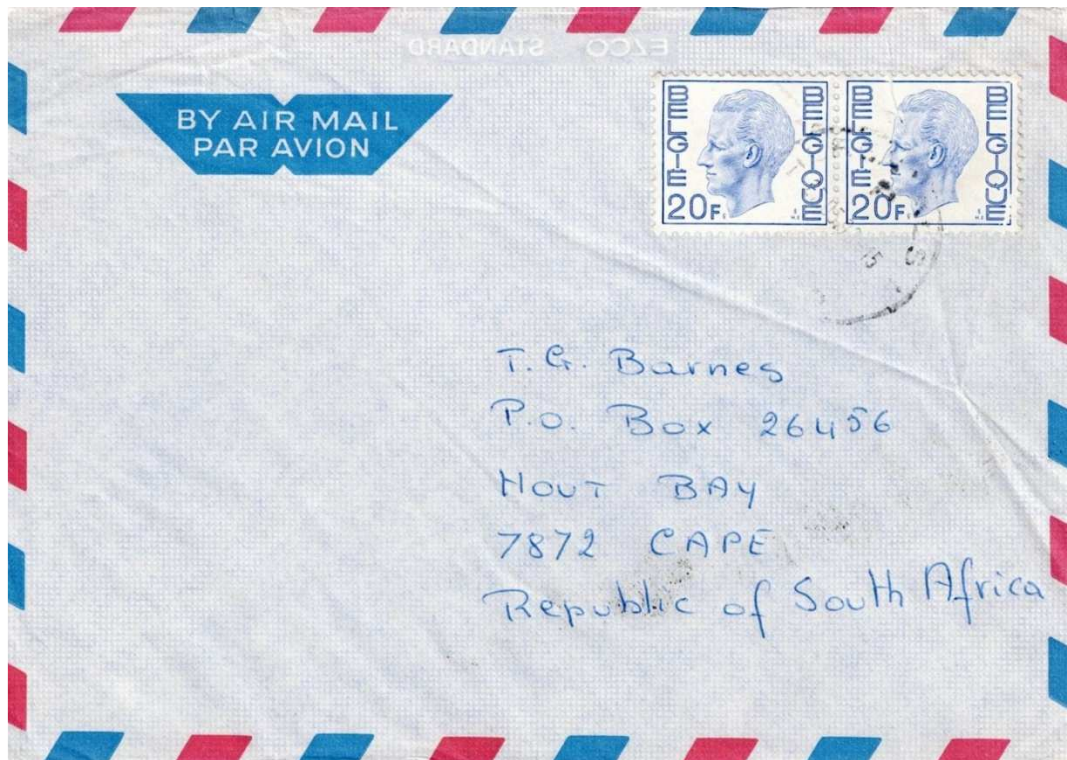 EZCO STANDARD
BY AIR MAIL
PAR AVION
BELGIE BELGIQUE
20F
BELGIE BELGIQUE
20F
T. G. Barnes
P.O. Box 26456
HOUT BAY
7872 CAPE
Republic of South Africa